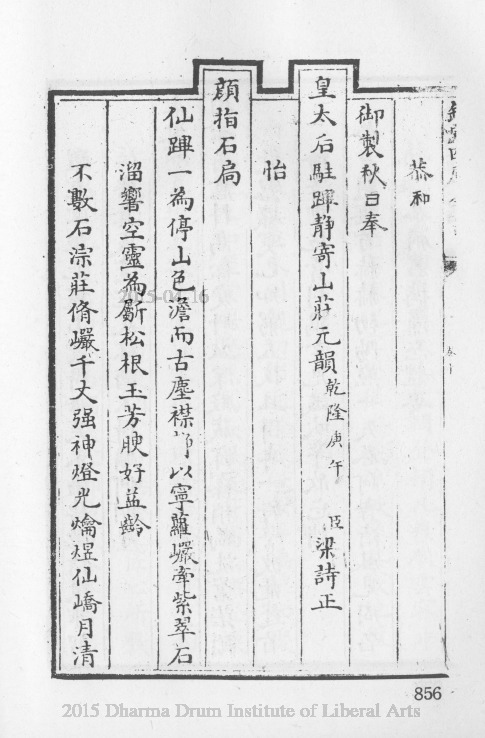 恭和
御製秋日奉
皇太后駐蹕静寄山莊元韻乾隆庚午 臣梁詩正
怡
顔指石扃
仙蹕一為停山色澹而古塵襟以寧蘿巘牽紫翠石
溜響空靈為斸松根玉芳腴好益齡
不數石淙莊脩巘千丈强神燈光爚煜仙嶠月清
856
2015-04-16
2015 Dharma Drum Institute of Liberal Arts